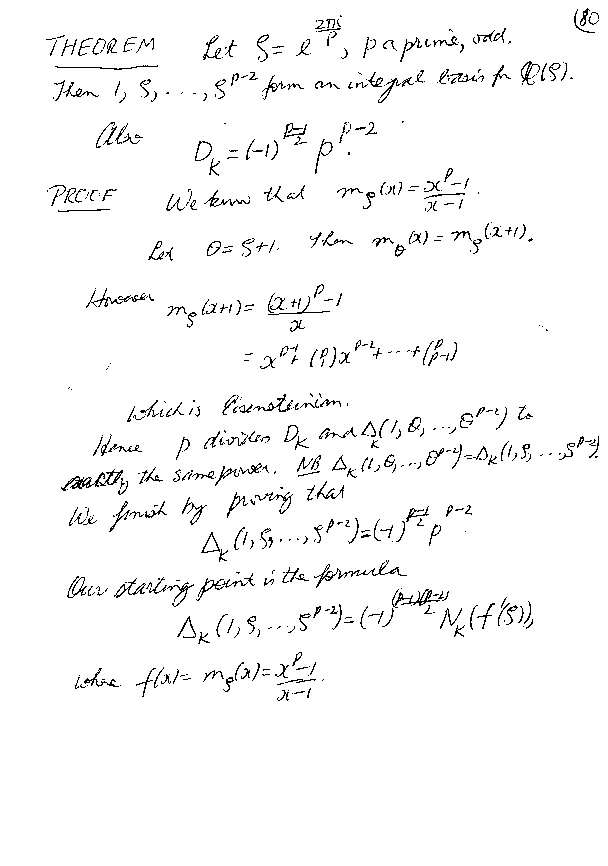 (80
THEOREM Let ζ = e^{2πi/p}, p a prime, odd.
Then 1, ζ, ..., ζ^{p-2} form an integral basis for Q(ζ).
Also
D_K = (-1)^{(p-1)/2} p^{p-2}.
PROOF We know that m_ζ(x) = (x^p - 1)/(x - 1).
Let θ = ζ+1. Then m_θ(x) = m_ζ(x+1).
However m_ζ(x+1) = ((x+1)^p - 1)/x
= x^{p-1} + (p 1)x^{p-2} + ... + (p p-1)
which is Eisensteinian.
Hence p divides D_K and Δ_K(1, θ, ..., θ^{p-2}) to
exactly the same power. NB Δ_K(1, θ, ..., θ^{p-2}) = Δ_K(1, ζ, ..., ζ^{p-2})
We finish by proving that
Δ_K(1, ζ, ..., ζ^{p-2}) = (-1)^{(p-1)/2} p^{p-2}.
Our starting point is the formula
Δ_K(1, ζ, ..., ζ^{p-2}) = (-1)^{(p-1)(p-2)/2} N_K(f'(ζ)),
where f(x) = m_ζ(x) = (x^p - 1)/(x - 1).